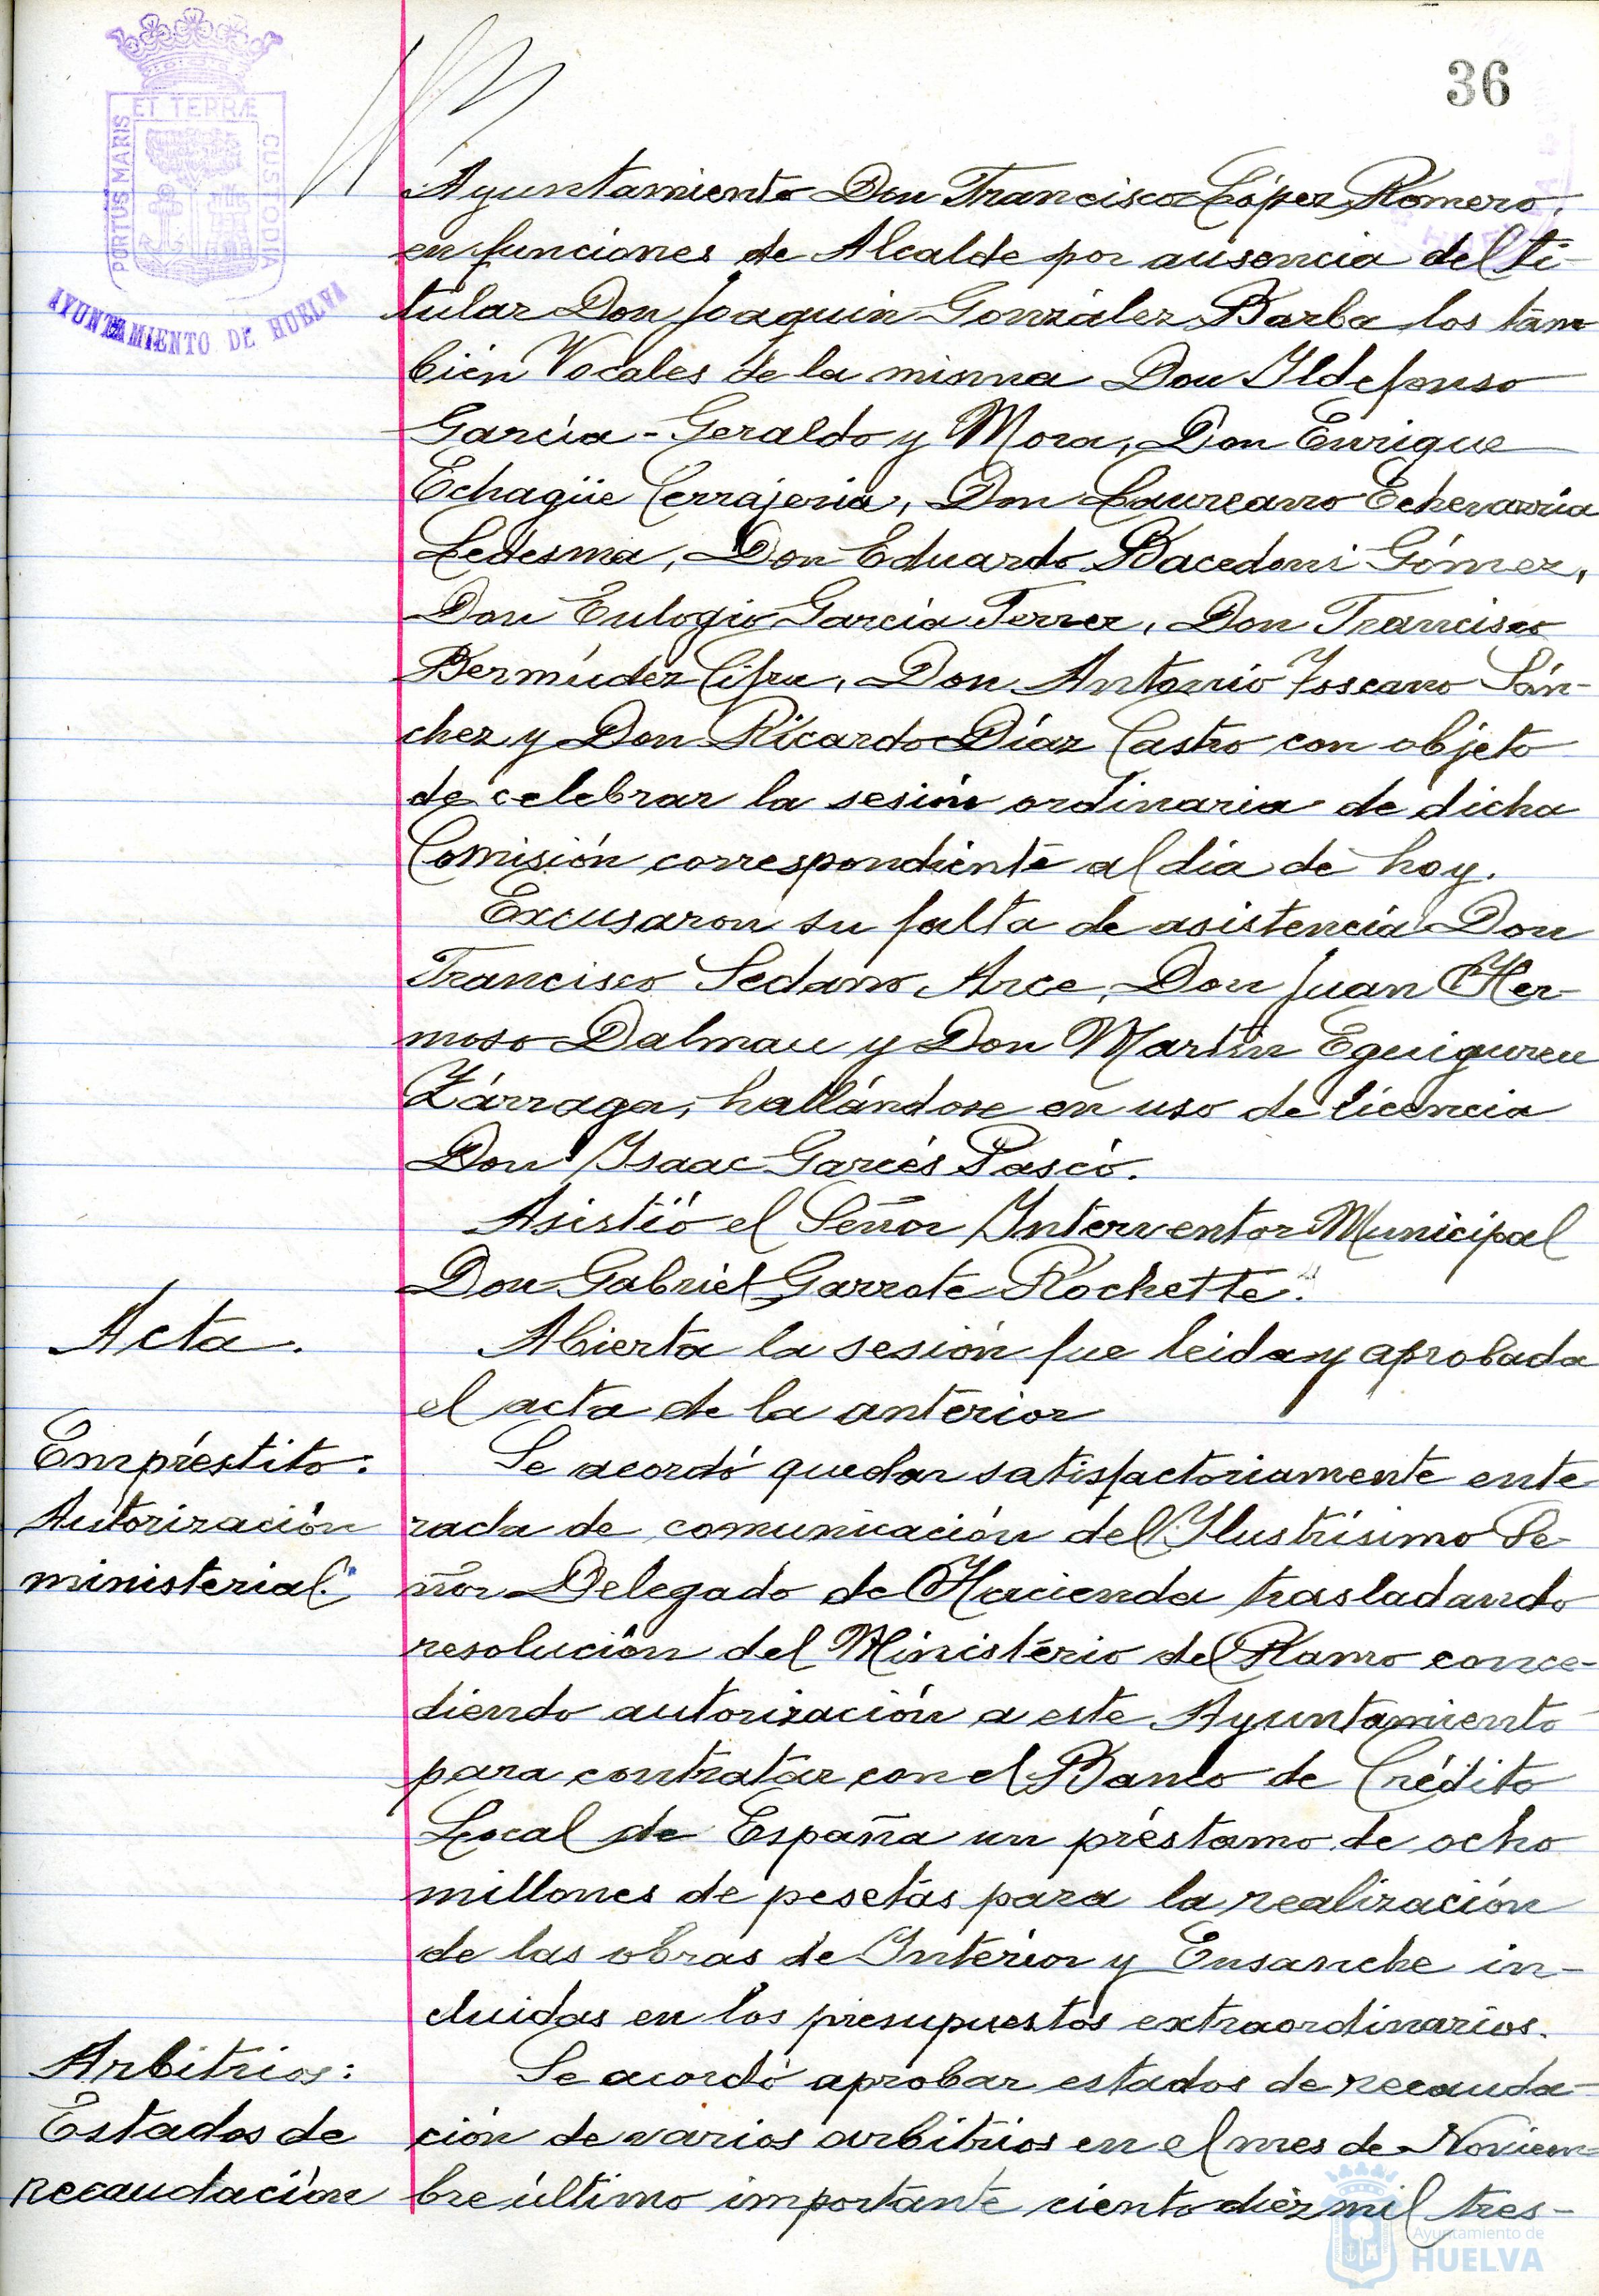 36
ET TERRÆ
PORTUS MARIS
CUSTODIA
AYUNTAMIENTO DE HUELVA
Ayuntamiento Don Francisco López Romero,
en funciones de Alcalde por ausencia del ti-
tular Don Joaquín González Barba los tam
bién Vocales de la misma Don Ildefonso
García-Geraldo y Mora, Don Enrique
Echagüe Cerrajería, Don Laureano Echevarría
Ledesma, Don Eduardo Bacedoni Gómez,
Don Eulogio García Ferrer, Don Francisco
Bermúdez Cifre, Don Antonio Toscano Sán-
chez y Don Ricardo Díaz Castro con objeto
de celebrar la sesión ordinaria de dicha
Comisión correspondiente al día de hoy.
Excusaron su falta de asistencia Don
Francisco Sedano Arce, Don Juan Her-
moso Dalmau y Don Martín Eguiguren
Zárraga, hallándose en uso de licencia
Don Isaac Garcés Pasco.
Asistió el Señor Interventor Municipal
Don Gabriel Garrote Rochette.
Acta.
Abierta la sesión fue leida y aprobada
el acta de la anterior
Empréstito:
Autorización
ministerial.
Se acordó quedar satisfactoriamente ente
rada de comunicación del Ilustrísimo Se-
ñor Delegado de Hacienda trasladando
resolución del Ministerio del Ramo conce-
diendo autorización a este Ayuntamiento
para contratar con el Banco de Crédito
Local de España un préstamo de ocho
millones de pesetas para la realización
de las obras de Interior y Ensanche in-
cluidas en los presupuestos extraordinarios.
Arbitrios:
Estados de
recaudación
Se acordó aprobar estados de recauda-
ción de varios arbitrios en el mes de Noviem=
bre último importante ciento diez mil tres-
Ayuntamiento de
HUELVA